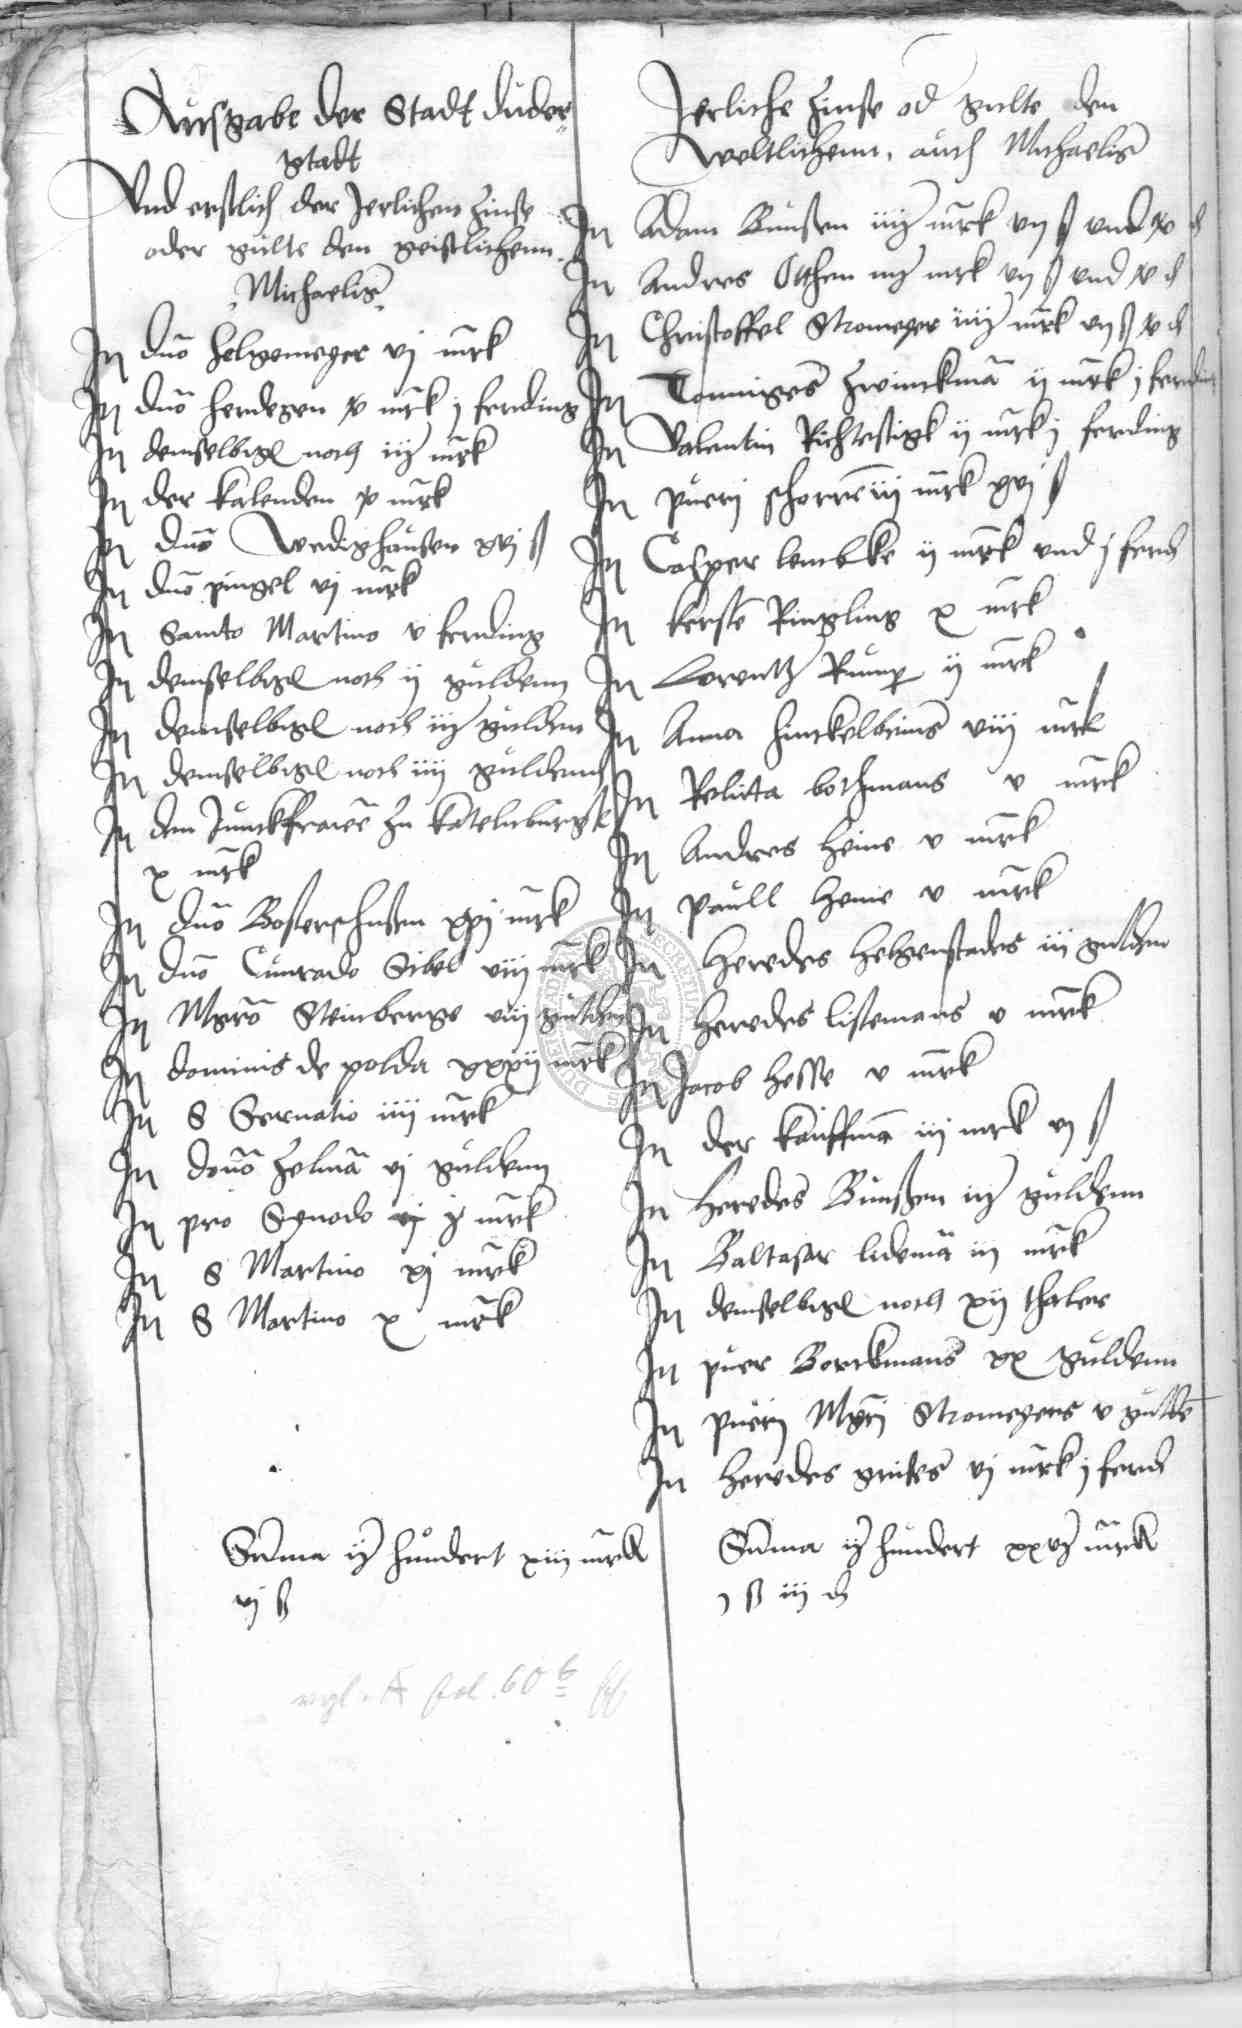 Ausgabe der Stadt duder
stadt
Vnd erstlich der Jerlichen Zinse
oder gulte den geistlichenn
Michaelis
It dno helgemeger vj mrk
It dno herdegen x mrk j ferding
It demselbigen noch iij mrk
It der kalenden x mrk
It dno Wedighausen xvj ß
It dno pingel vj mrk
It Sancto Martino v ferding
It demselbigen noch ij guldenn
It demselbigen noch iij gulden
It demselbigen noch iiij guldenn
It den Junckfrawen zu katelnburgk
x mrk
It dno xvj mrk
It dno Cunrado Sibel viij mrk
It Mgro Steinberge viij gulden
It dominis de polda xxxij mrk
It S Seruatio iiij mrk
It domo Zelma vj guldenn
It pro Synodo mrk
It S Martino xj mrk
It S Martino x mrk
Suma hundert xiij mrck
vj ß
vgl. fol. 60 b ff
Jerliche Zinse od gulte den
Weltlichenn auch Michaelis
It Adam Bunßen iiij mrk vij ß vnd x d
It Andres Otthen mrk vij ß vnd x d
It Christoffel Stromeger iiij mrk vij ß x d
It Tonniges Zwinckma ij mrk j ferding
It Valentin Richtestigk ij mrk j ferding
It pueri iij mrk xvj ß
It Casper lembke ij mrk vnd j ferd
It kersten Ringling x mrk
It Lorentz Rump ij mrk
It Anna hinckelbeins viij mrk
It Relicta bothmans v mrk
It Andres heine v mrk
It paull heine v mrk
It Heredes helgenstades iij gulden
It Heredes listemans v mrk
It Jacob Hesse v mrk
It der kauffma iij mrk vj ß
It Heredes Bunßen iij guldenn
It Baltasar lidema iij mrk
It demselbigen noch xij thaler
It puer Borckmans xx guldenn
It pueri Mgri Stromegers v gulde
It Heredes vj mrk j ferd
Suma hundert mrck
j ß iij d